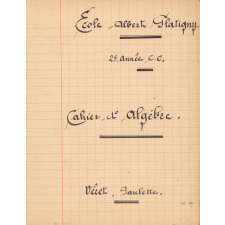 École Albert Flatigny.
2e Année, C.C.
Cahier d'Algèbre.
Véret, Paulette.